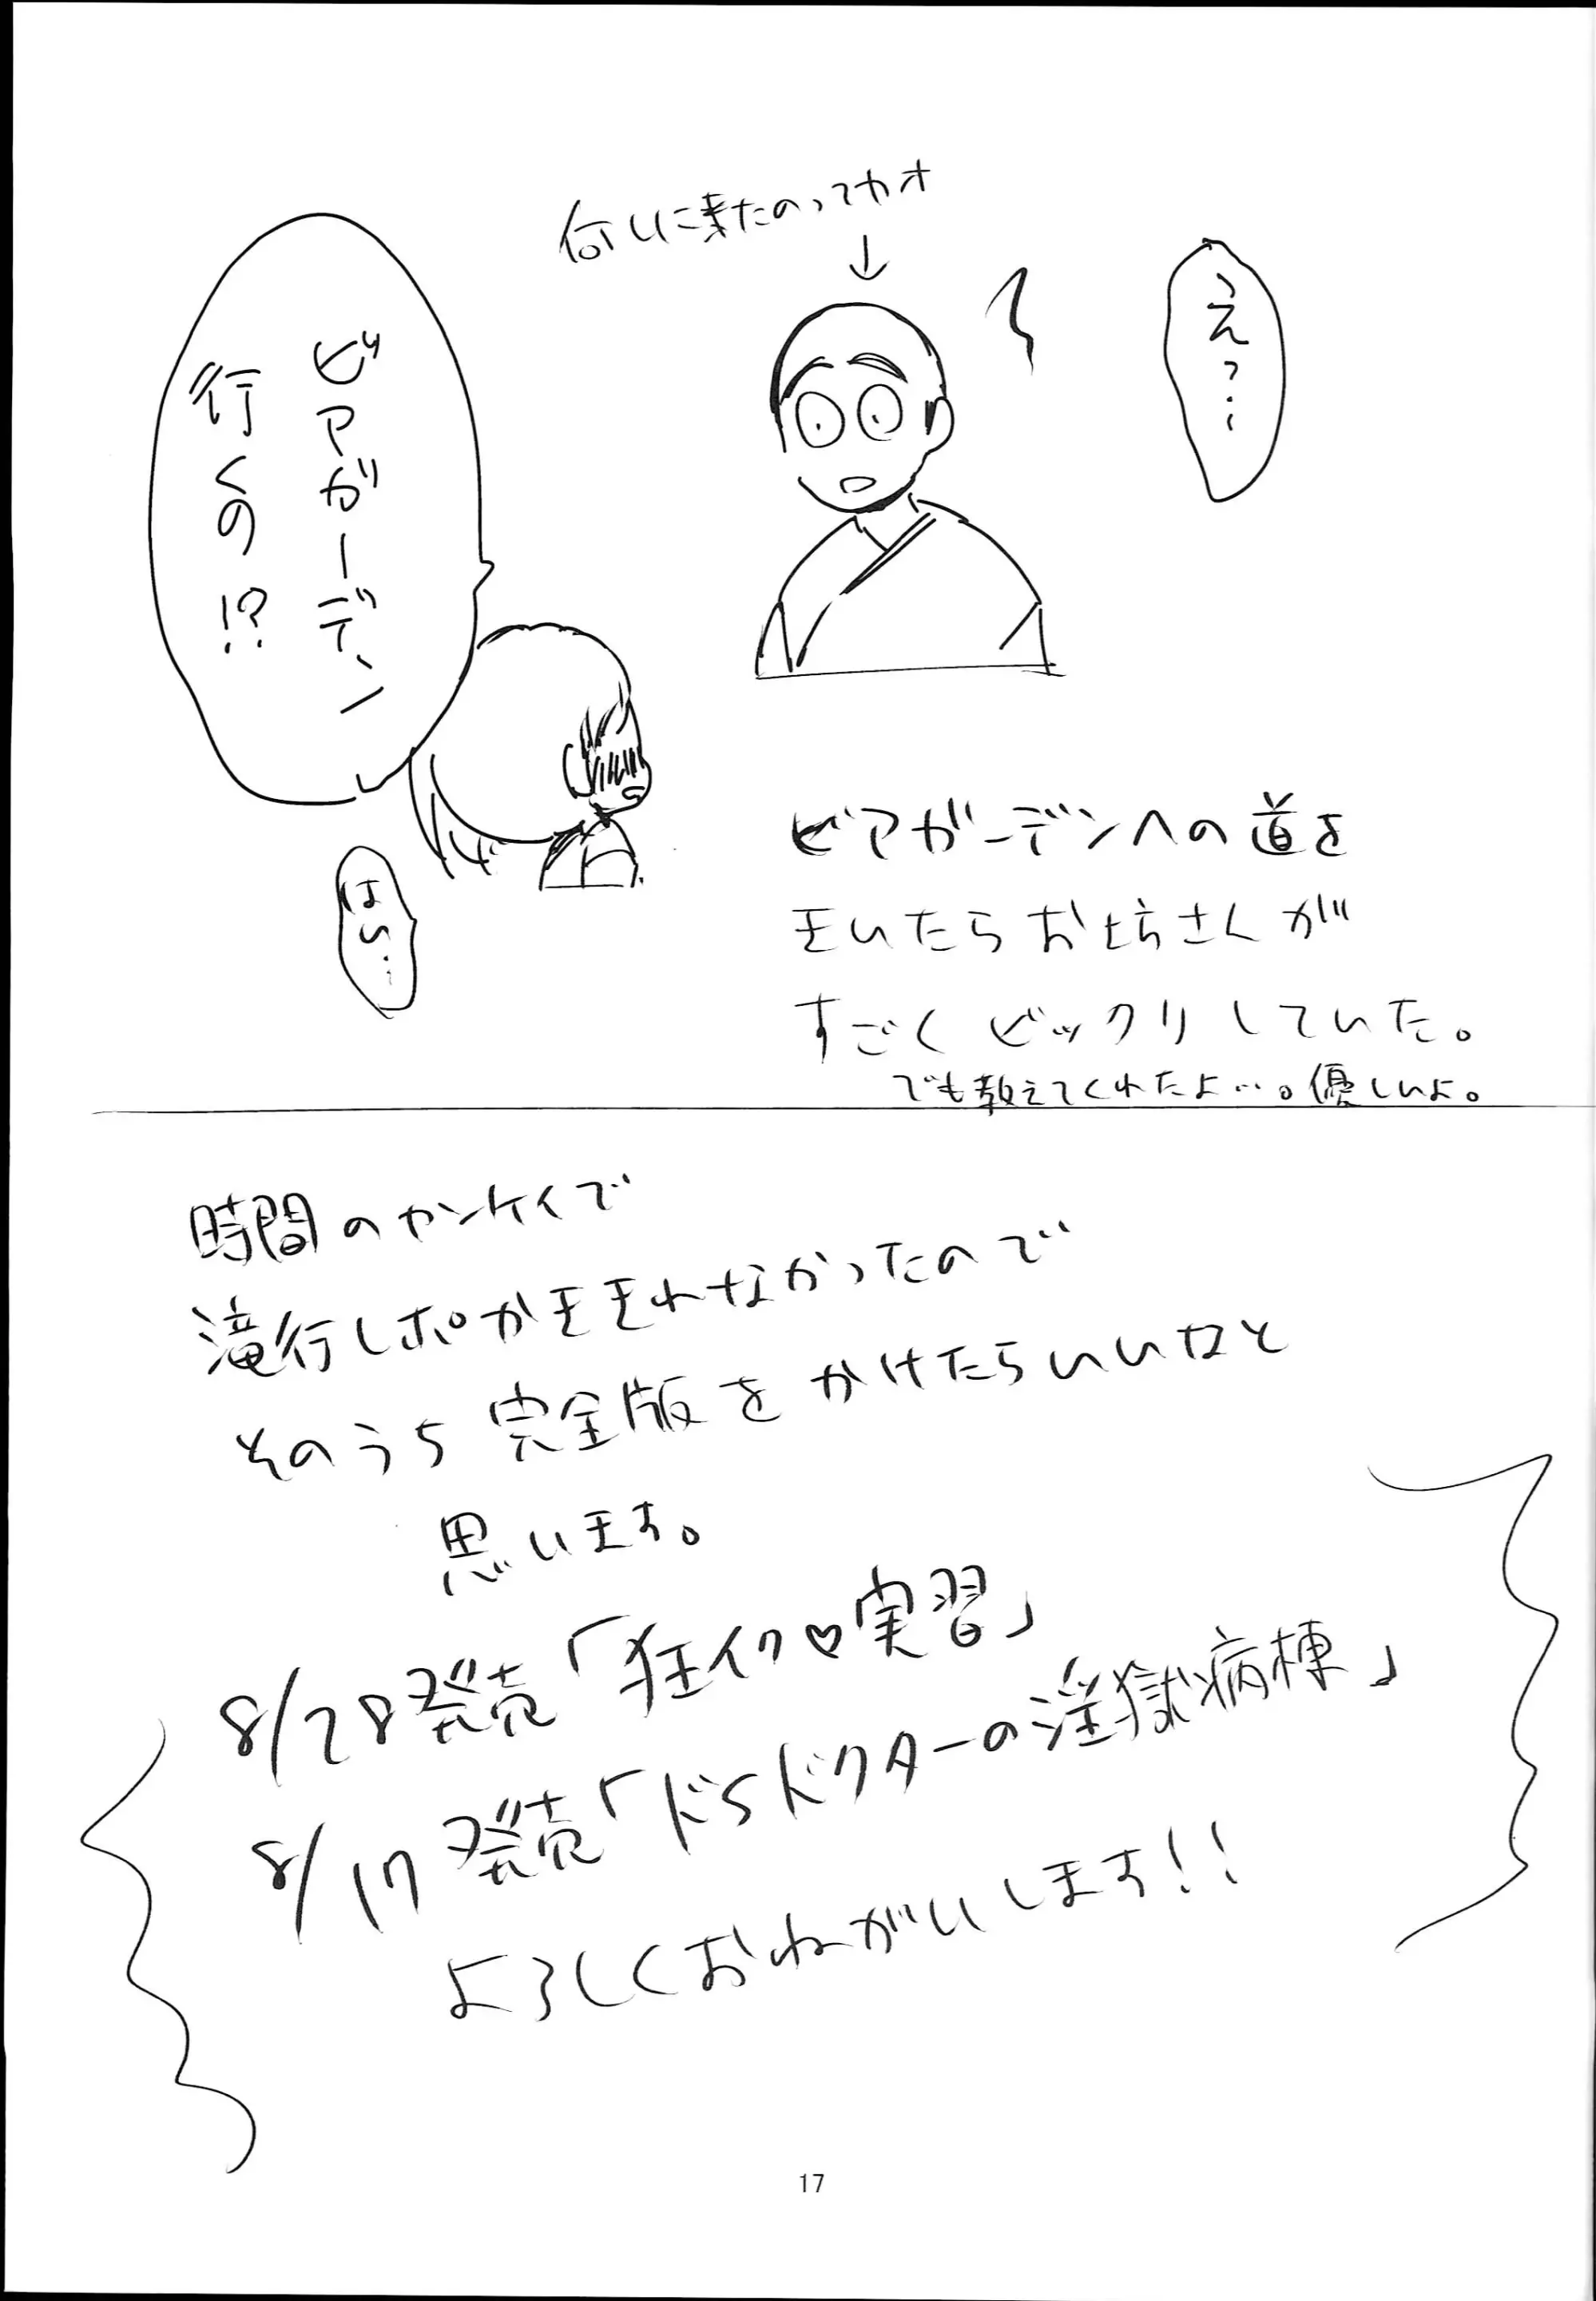 何しに来たのってカオ
↓
えっ…
ビアガーデン
行くの!?
はい…
ビアガーデンへの道を
きいたらお坊さんが
すごくビックリしていた。
でも教えてくれたよ…。優しいよ。
時間のカンケイで
滝行レポがまきれなかったので
そのうち完全版をかけたらいいなと
思います。
8/28発売「狂イク♡実習」
8/17発売「ドSドクターの淫獄病棟」
よろしくおねがいします!!
17